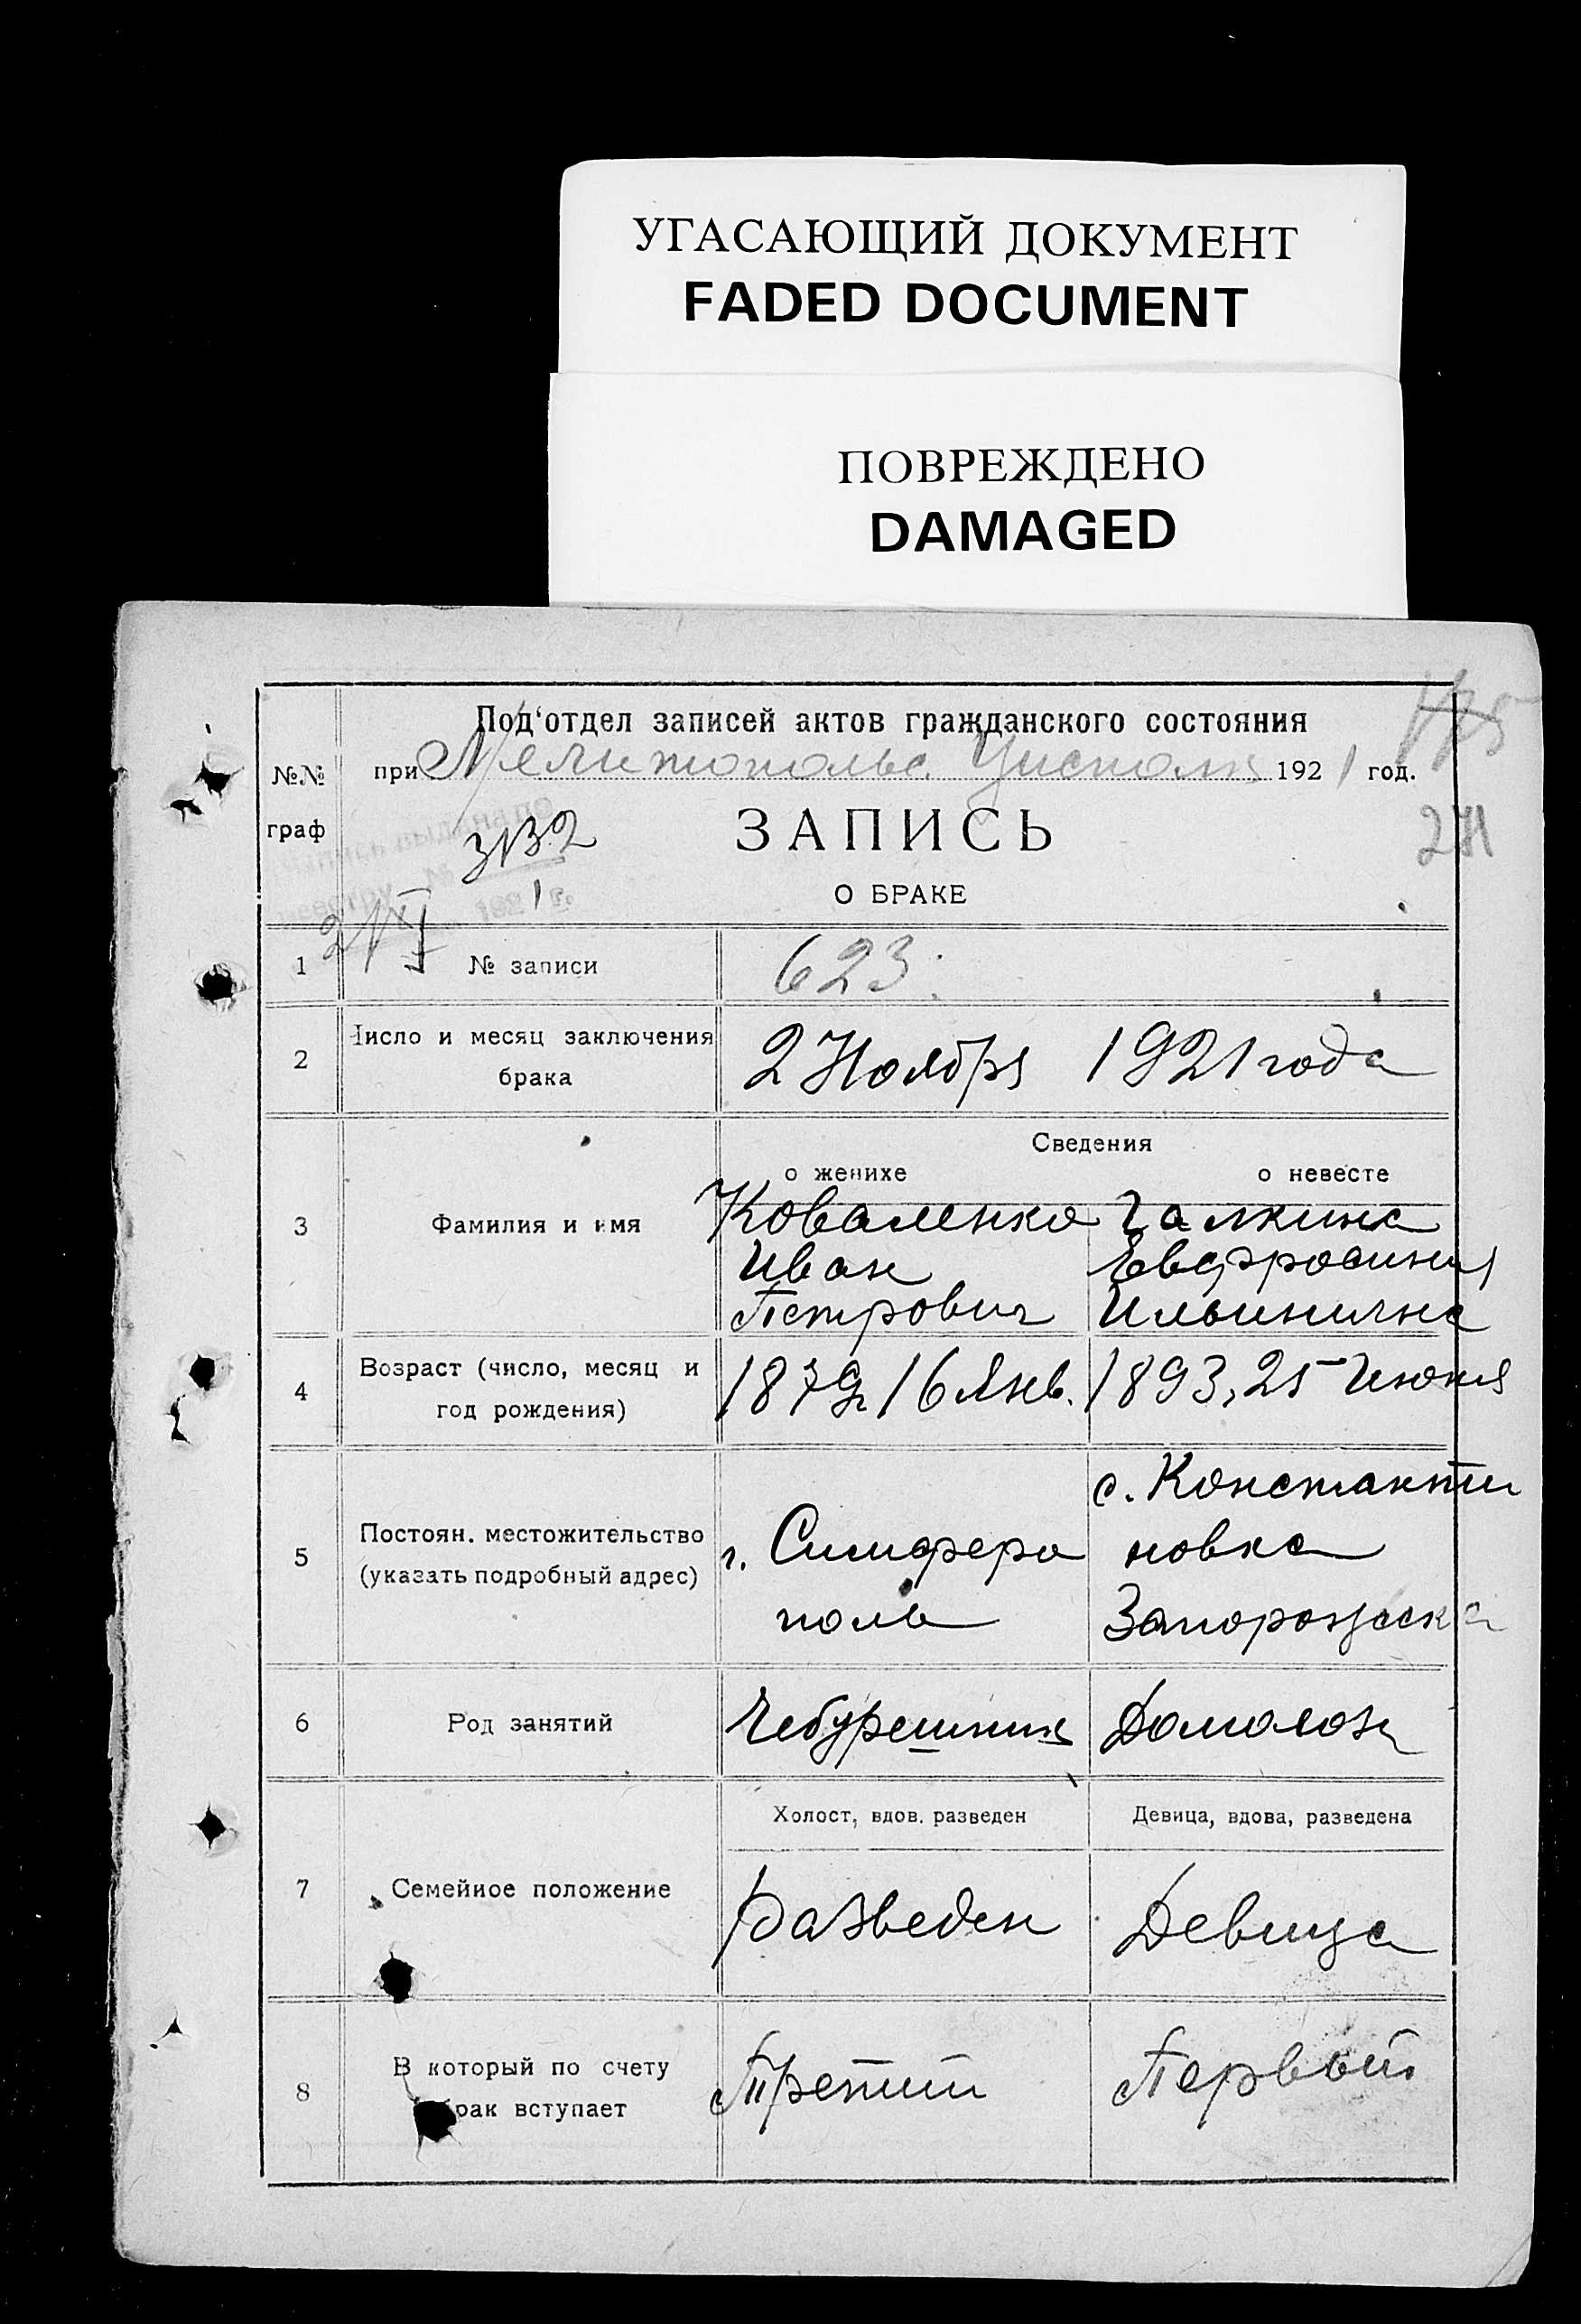 УГАСАЮЩИЙ ДОКУМЕНТ
FADED DOCUMENT
ПОВРЕЖДЕНО
DAMAGED
Под‘отдел записей актов гражданского состояния
№№ граф
при Мелитопольс. Уисполк 1921 год.
271
3132
ЗАПИСЬ
О БРАКЕ
1 № записи 623
2 Число и месяц заключения брака
2 Ноября 1921 года
Сведения
о женихе о невесте
3 Фамилия и имя
Коваленко Галкина
Иван Евфросиния
Петрович Ильинична
4 Возраст (число, месяц и год рождения)
1879 16 Янв. 1893, 25 Июня
5 Постоян. местожительство
(указать подробный адрес)
г. Симферо
поль
с. Константи
новка
Запорожска
6 Род занятий
Чебурешник Домохоз
Холост, вдов. разведен Девица, вдова, разведена
7 Семейное положение
Разведен Девица
8 В который по счету
брак вступает
Третий Первый